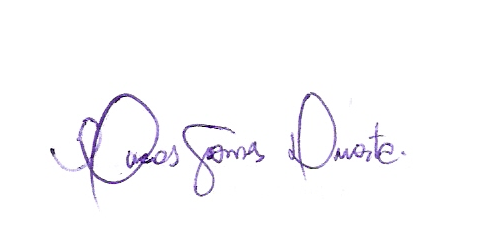 Lucas Gomes Duarte.